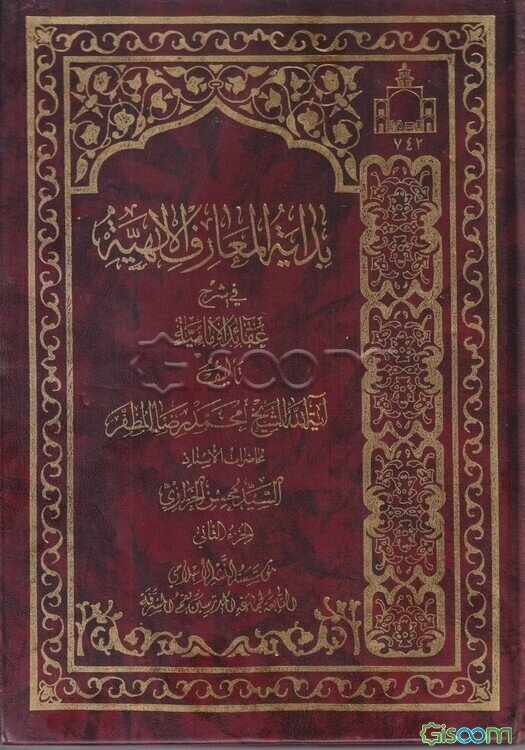 ٧٤٢
بداية المعارف الإلهية
في شرح
عقائد الإمامية
تأليف
آية الله الشيخ محمد رضا المظفر
محاضرات الأستاذ
السيد محسن الخرازي
الجزء الثاني
مؤسسة النشر الإسلامي
التابعة لجماعة المدرسين بقم المشرفة
Gisoom
Gisoom